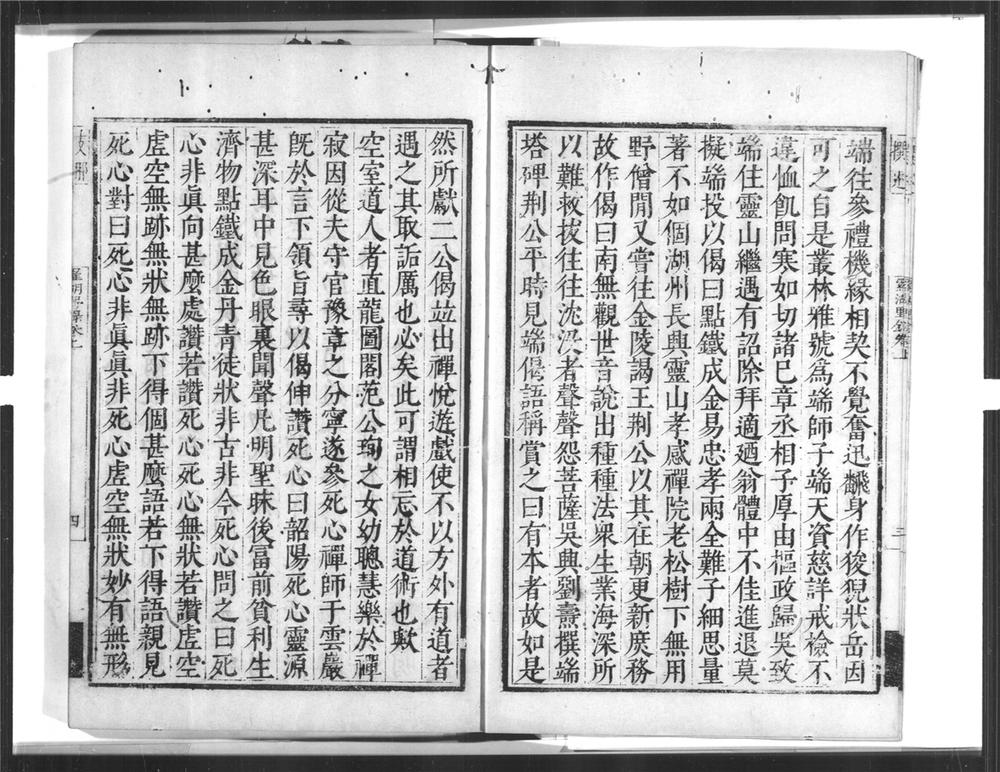 端往參禮機緣相契不覺奮迅飜身作狻猊狀岳因
可之自是叢林雅號爲端師子端天資慈詳戒檢不
違恤飢問寒如切諸己章丞相子厚由樞政歸吳致
端住靈山繼遇有詔除拜適廼翁體中不佳進退莫
擬端投以偈曰點鐵成金易忠孝兩全難子細思量
著不如個湖州長興靈山孝感禪院老松樹下無用
野僧閒又嘗往金陵謁王荆公以其在朝更新庶務
故作偈曰南無觀世音說出種種法衆生業海深所
以難救拔往往沈沒者聲聲怨菩薩吳興劉燾撰端
塔碑荆公平時見端偈語稱賞之曰有本者故如是
然所獻二公偈竝出禪悅遊戲使不以方外有道者
遇之其取詬厲也必矣此可謂相忘於道術也歟
空室道人者直龍圖閣范公珣之女幼聰慧樂於禪
寂因從夫守官豫章之分寧遂參死心禪師于雲巖
旣於言下領旨尋以偈伸讚死心曰韶陽死心靈源
甚深耳中見色眼裏聞聲凡明聖昧後富前貧利生
濟物點鐵成金丹青徒狀非古非今死心問之曰死
心非眞向甚麼處讚若讚死心死心無狀若讚虛空
虛空無跡無狀無跡下得個甚麼語若下得語親見
死心對曰死心非眞眞非死心虛空無狀妙有無形
四